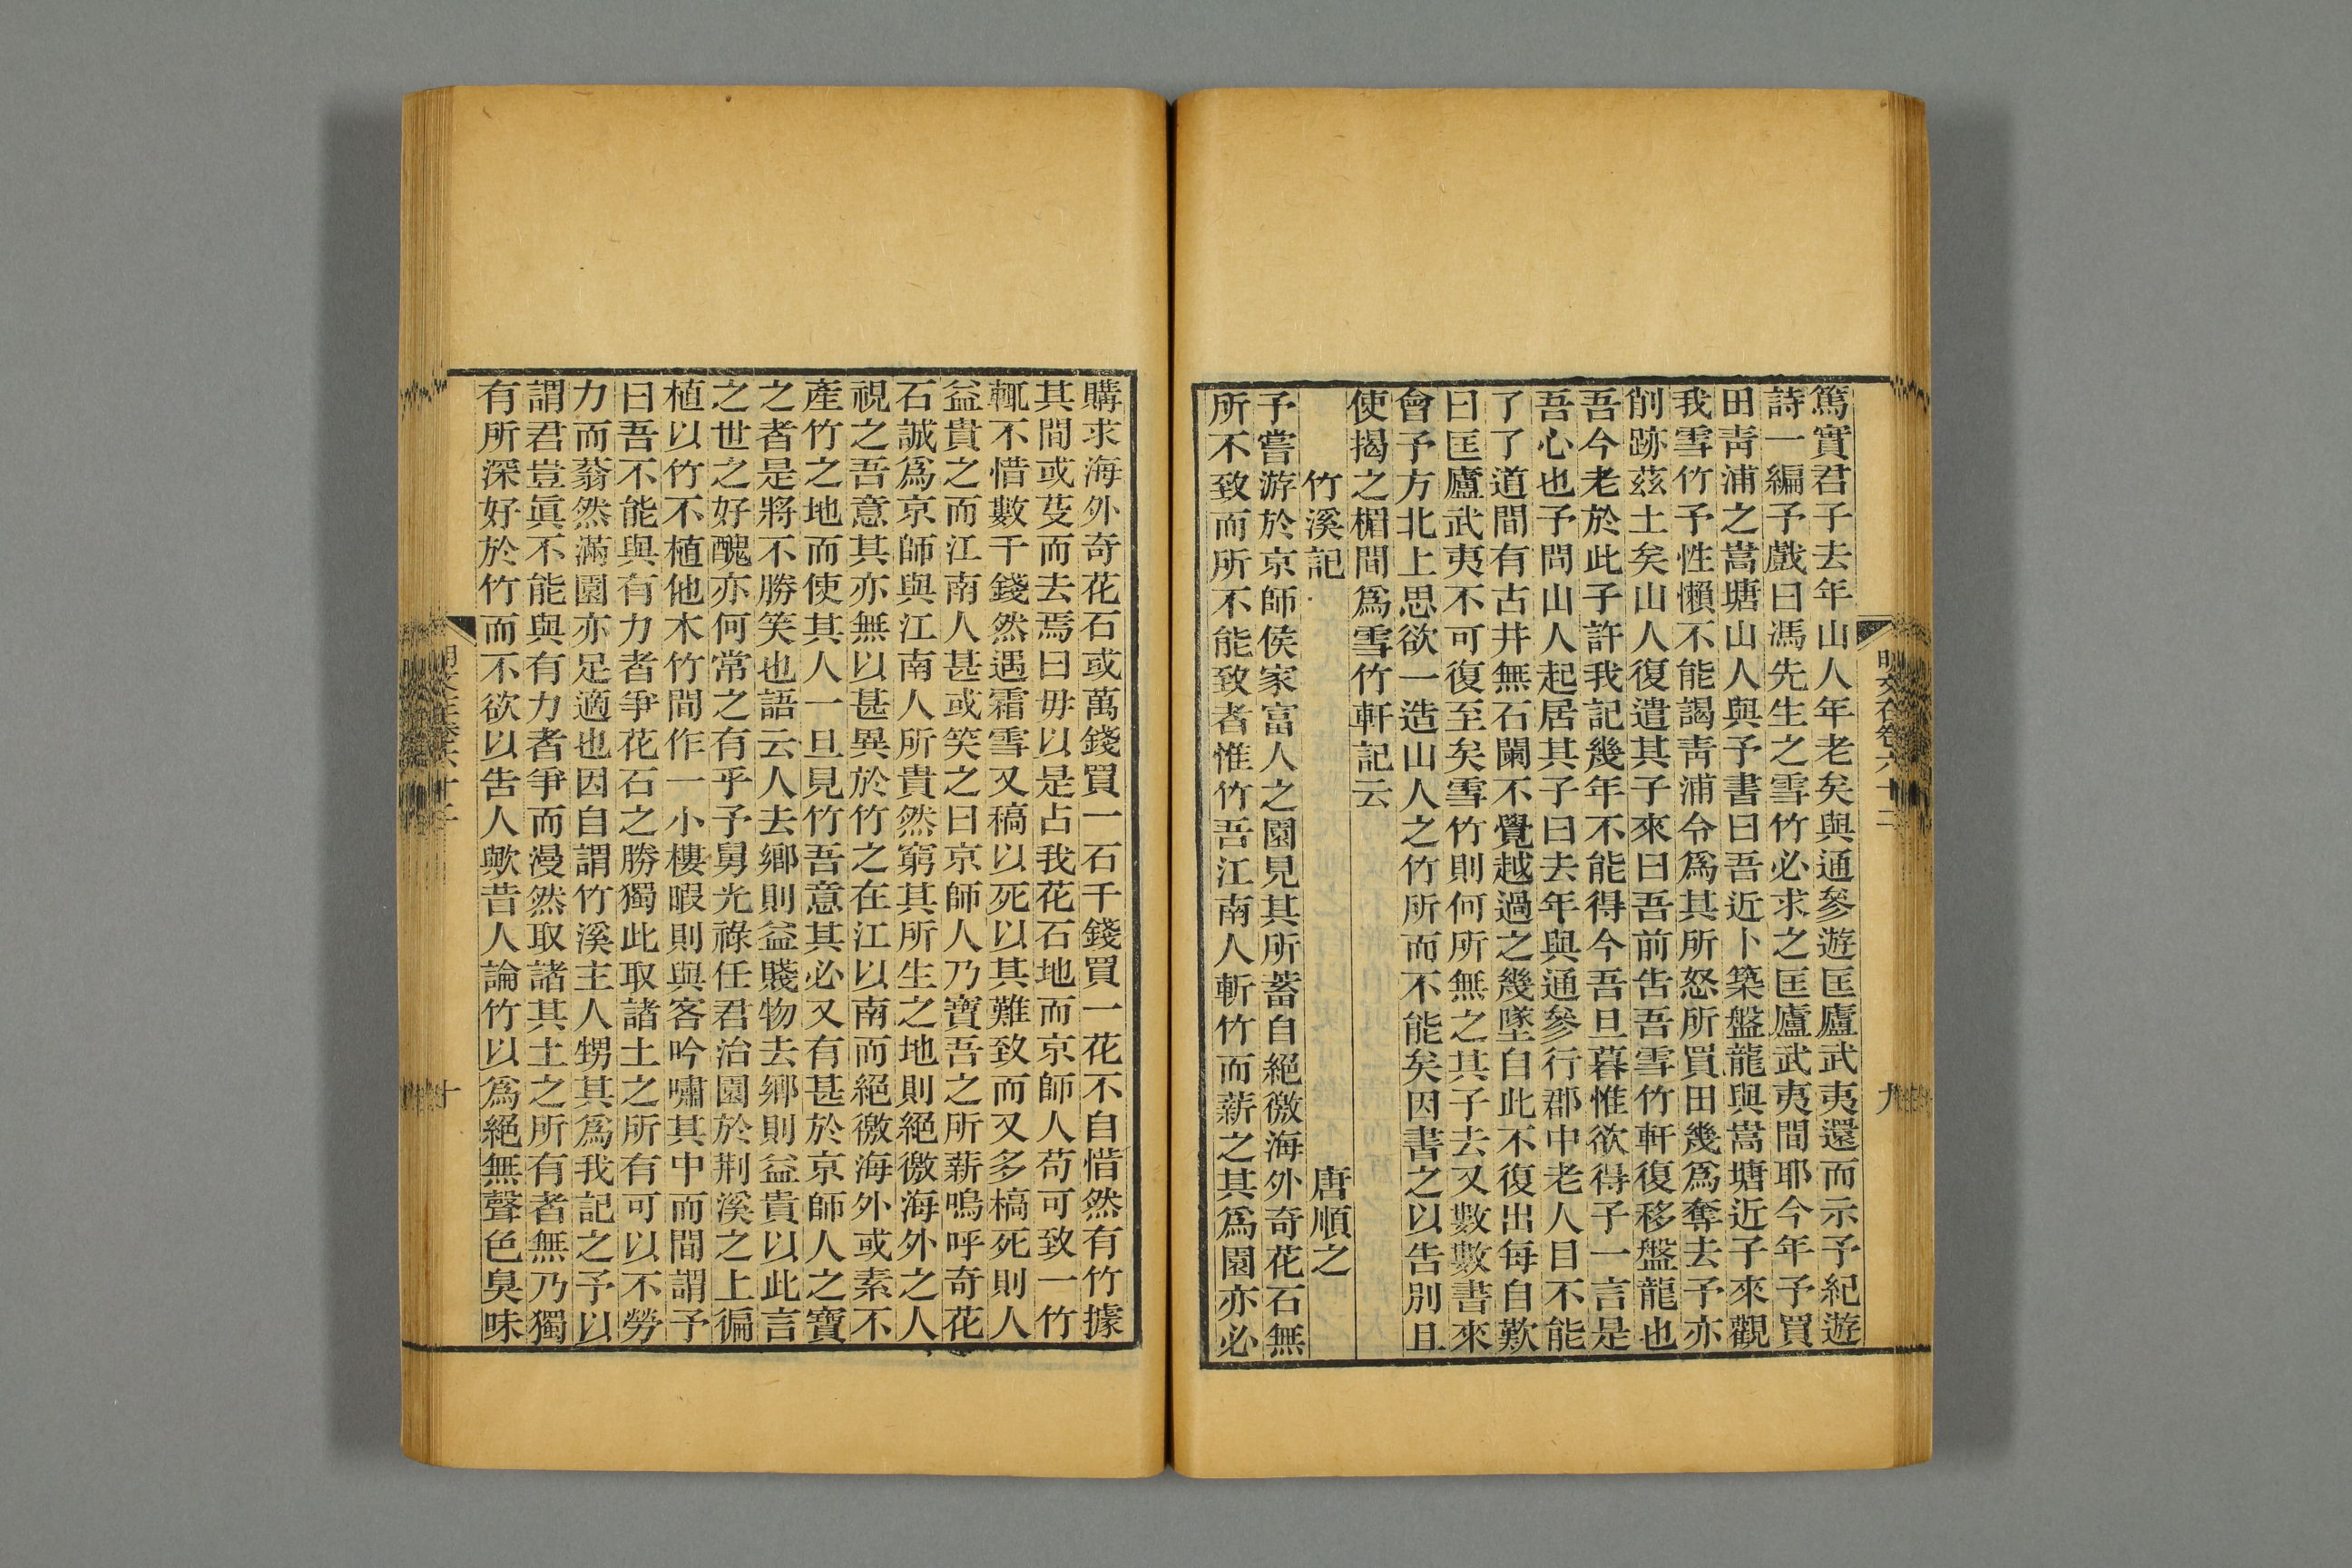 篤實君子去年山人年老矣與通參遊匡廬武夷還而示予紀遊
詩一編予戲曰馮先生之雪竹必求之匡廬武夷間耶今年予買
田靑浦之嵩塘山人與予書曰吾近卜築盤龍與嵩塘近子來觀
我雪竹予性懶不能謁靑浦令爲其所怒所買田幾爲奪去予亦
削跡茲土矣山人復遣其子來曰吾前告吾雪竹軒復移盤龍也
吾今老於此子許我記幾年不能得今吾旦暮惟欲得子一言是
吾心也予問山人起居其子曰去年與通參行郡中老人目不能
了了道間有古井無石闌不覺越過之幾墜自此不復出每自歎
曰匡廬武夷不可復至矣雪竹則何所無之其子去又數數書來
會予方北上思欲一造山人之竹所而不能矣因書之以告別且
使揭之楣間爲雪竹軒記云
竹溪記 唐順之
予嘗游於京師侯家富人之園見其所蓄自絕徼海外奇花石無
所不致而所不能致者惟竹吾江南人斬竹而薪之其爲園亦必
明文在卷六十二
九
購求海外奇花石或萬錢買一石千錢買一花不自惜然有竹據
其間或芟而去焉曰毋以是占我花石地而京師人苟可致一竹
輒不惜數千錢然遇霜雪又稿以死以其難致而又多槁死則人
益貴之而江南人甚或笑之曰京師人乃寶吾之所薪嗚呼奇花
石誠爲京師與江南人所貴然窮其所生之地則絕徼海外之人
視之吾意其亦無以甚異於竹之在江以南而絕徼海外或素不
產竹之地而使其人一旦見竹吾意其必又有甚於京師人之寶
之者是將不勝笑也語云人去鄉則益賤物去鄉則益貴以此言
之世之好醜亦何常之有乎予舅光祿任君治園於荆溪之上徧
植以竹不植他木竹間作一小樓暇則與客吟嘯其中而間謂予
曰吾不能與有力者爭花石之勝獨此取諸土之所有可以不勞
力而蓊然滿園亦足適也因自謂竹溪主人甥其爲我記之予以
謂君豈眞不能與有力者爭而漫然取諸其土之所有者無乃獨
有所深好於竹而不欲以告人歟昔人論竹以爲絕無聲色臭味
十